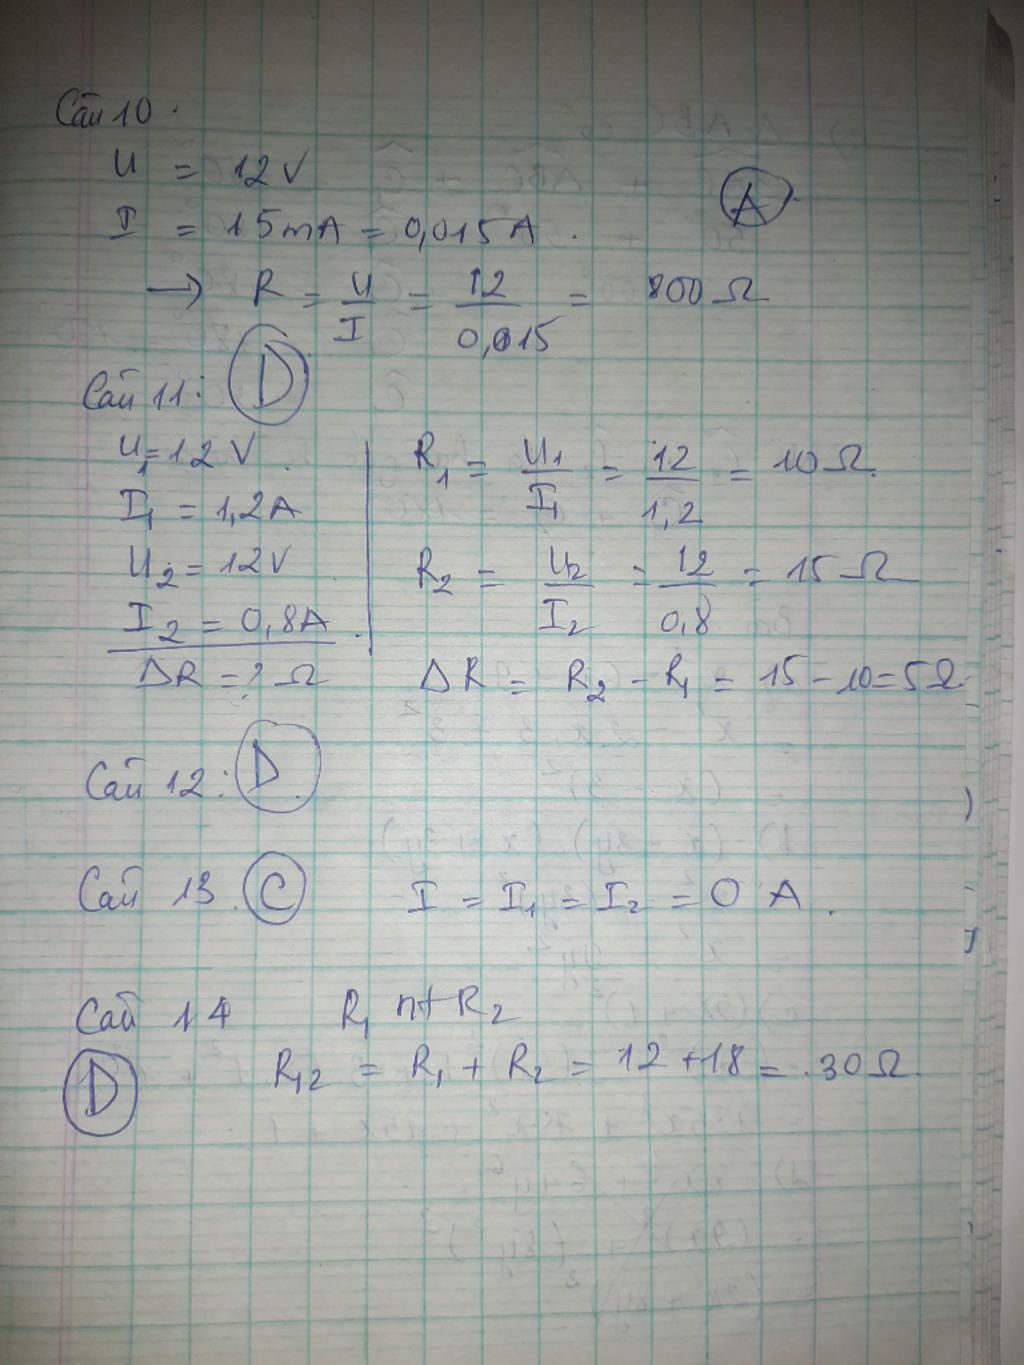 Câu 10.
U = 12V
I = 15mA = 0,015A. (A)
→ R = U/I = 12/0,015 = 800Ω
Câu 11: (D)
U₁ = 12 V.
I₁ = 1,2A
U₂ = 12V
I₂ = 0,8A.
ΔR = ? Ω
R₁ = U₁/I₁ = 12/1,2 = 10Ω.
R₂ = U₂/I₂ = 12/0,8 = 15Ω
ΔR = R₂ - R₁ = 15 - 10 = 5Ω
Câu 12: (D)
Câu 13. (C) I = I₁ = I₂ = 0 A.
Câu 14 R₁ nt R₂
(D) R₁₂ = R₁ + R₂ = 12 + 18 = 30Ω